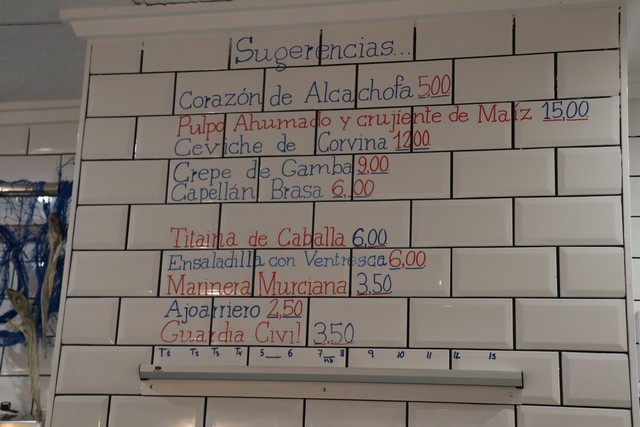 Sugerencias...
Corazón de Alcachofa 5,00
Pulpo Ahumado y crujiente de Maíz 15,00
Ceviche de Corvina 12,00
Crepe de Gamba 9,00
Capellán Brasa 6,00
Titaina de Caballa 6,00
Ensaladilla con Ventresca 6,00
Marinera Murciana 3,50
Ajoarriero 2,50
Guardia Civil 3,50
T0 T2 T3 T4 5 6 7 8 9 10 11 12 13